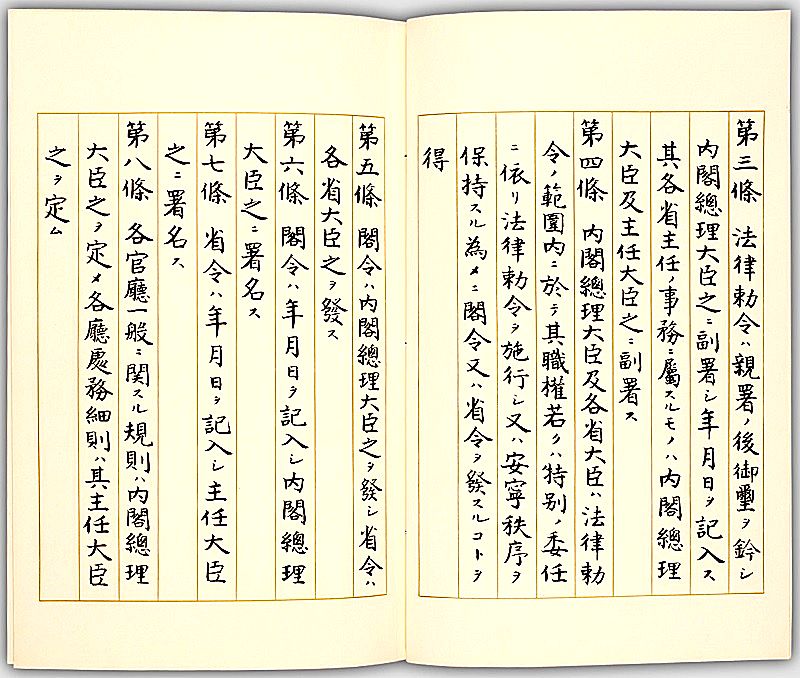 第三條　法律勅令ハ親署ノ後御璽ヲ鈐シ
内閣總理大臣之ニ副署シ年月日ヲ記入ス
其各省主任ノ事務ニ屬スルモノハ内閣總理
大臣及主任大臣之ニ副署ス
第四條　内閣總理大臣及各省大臣ハ法律勅
令ノ範圍内ニ於テ其職權若クハ特別ノ委任
ニ依リ法律勅令ヲ施行シ又ハ安寧秩序ヲ
保持スル為メニ閣令又ハ省令ヲ發スルコトヲ
得
第五條　閣令ハ内閣總理大臣之ヲ發シ省令ハ
各省大臣之ヲ發ス
第六條　閣令ハ年月日ヲ記入シ内閣總理
大臣之ニ署名ス
第七條　省令ハ年月日ヲ記入シ主任大臣
之ニ署名ス
第八條　各官廳一般ニ関スル規則ハ内閣總理
大臣之ヲ定メ各廳處務細則ハ其主任大臣
之ヲ定ム